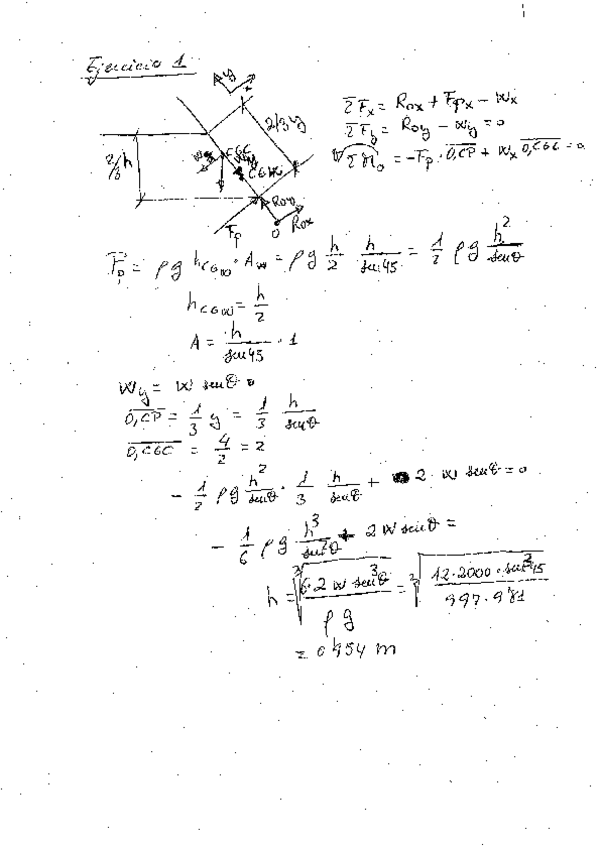 Ejercicio 1
y
x
2/3 y
2/3 h
CGC
CGW
Roy
Rox
Fp
0
ΣFx = Rox + Fpx - Wx
ΣFy = Roy - Wy = 0
ΣM0 = -Fp · 0,CP + Wx 0,CGC = 0
Fp = ρg hCGW · Aw = ρg h/2 h/sen45 = 1/2 ρg h²/senθ
hCGW = h/2
A = h/sen45 · 1
Wy = W senθ
0,CP = 1/3 y = 1/3 h/senθ
0,CGC = 4/2 = 2
- 1/2 ρg h²/senθ · 1/3 h/senθ + 2 W senθ = 0
- 1/6 ρg h³/sen²θ + 2 W senθ =
h = ∛(6·2 W sen³θ / ρg) = ∛(12·2000·sen³45 / 997·9,81)
= 0,954 m